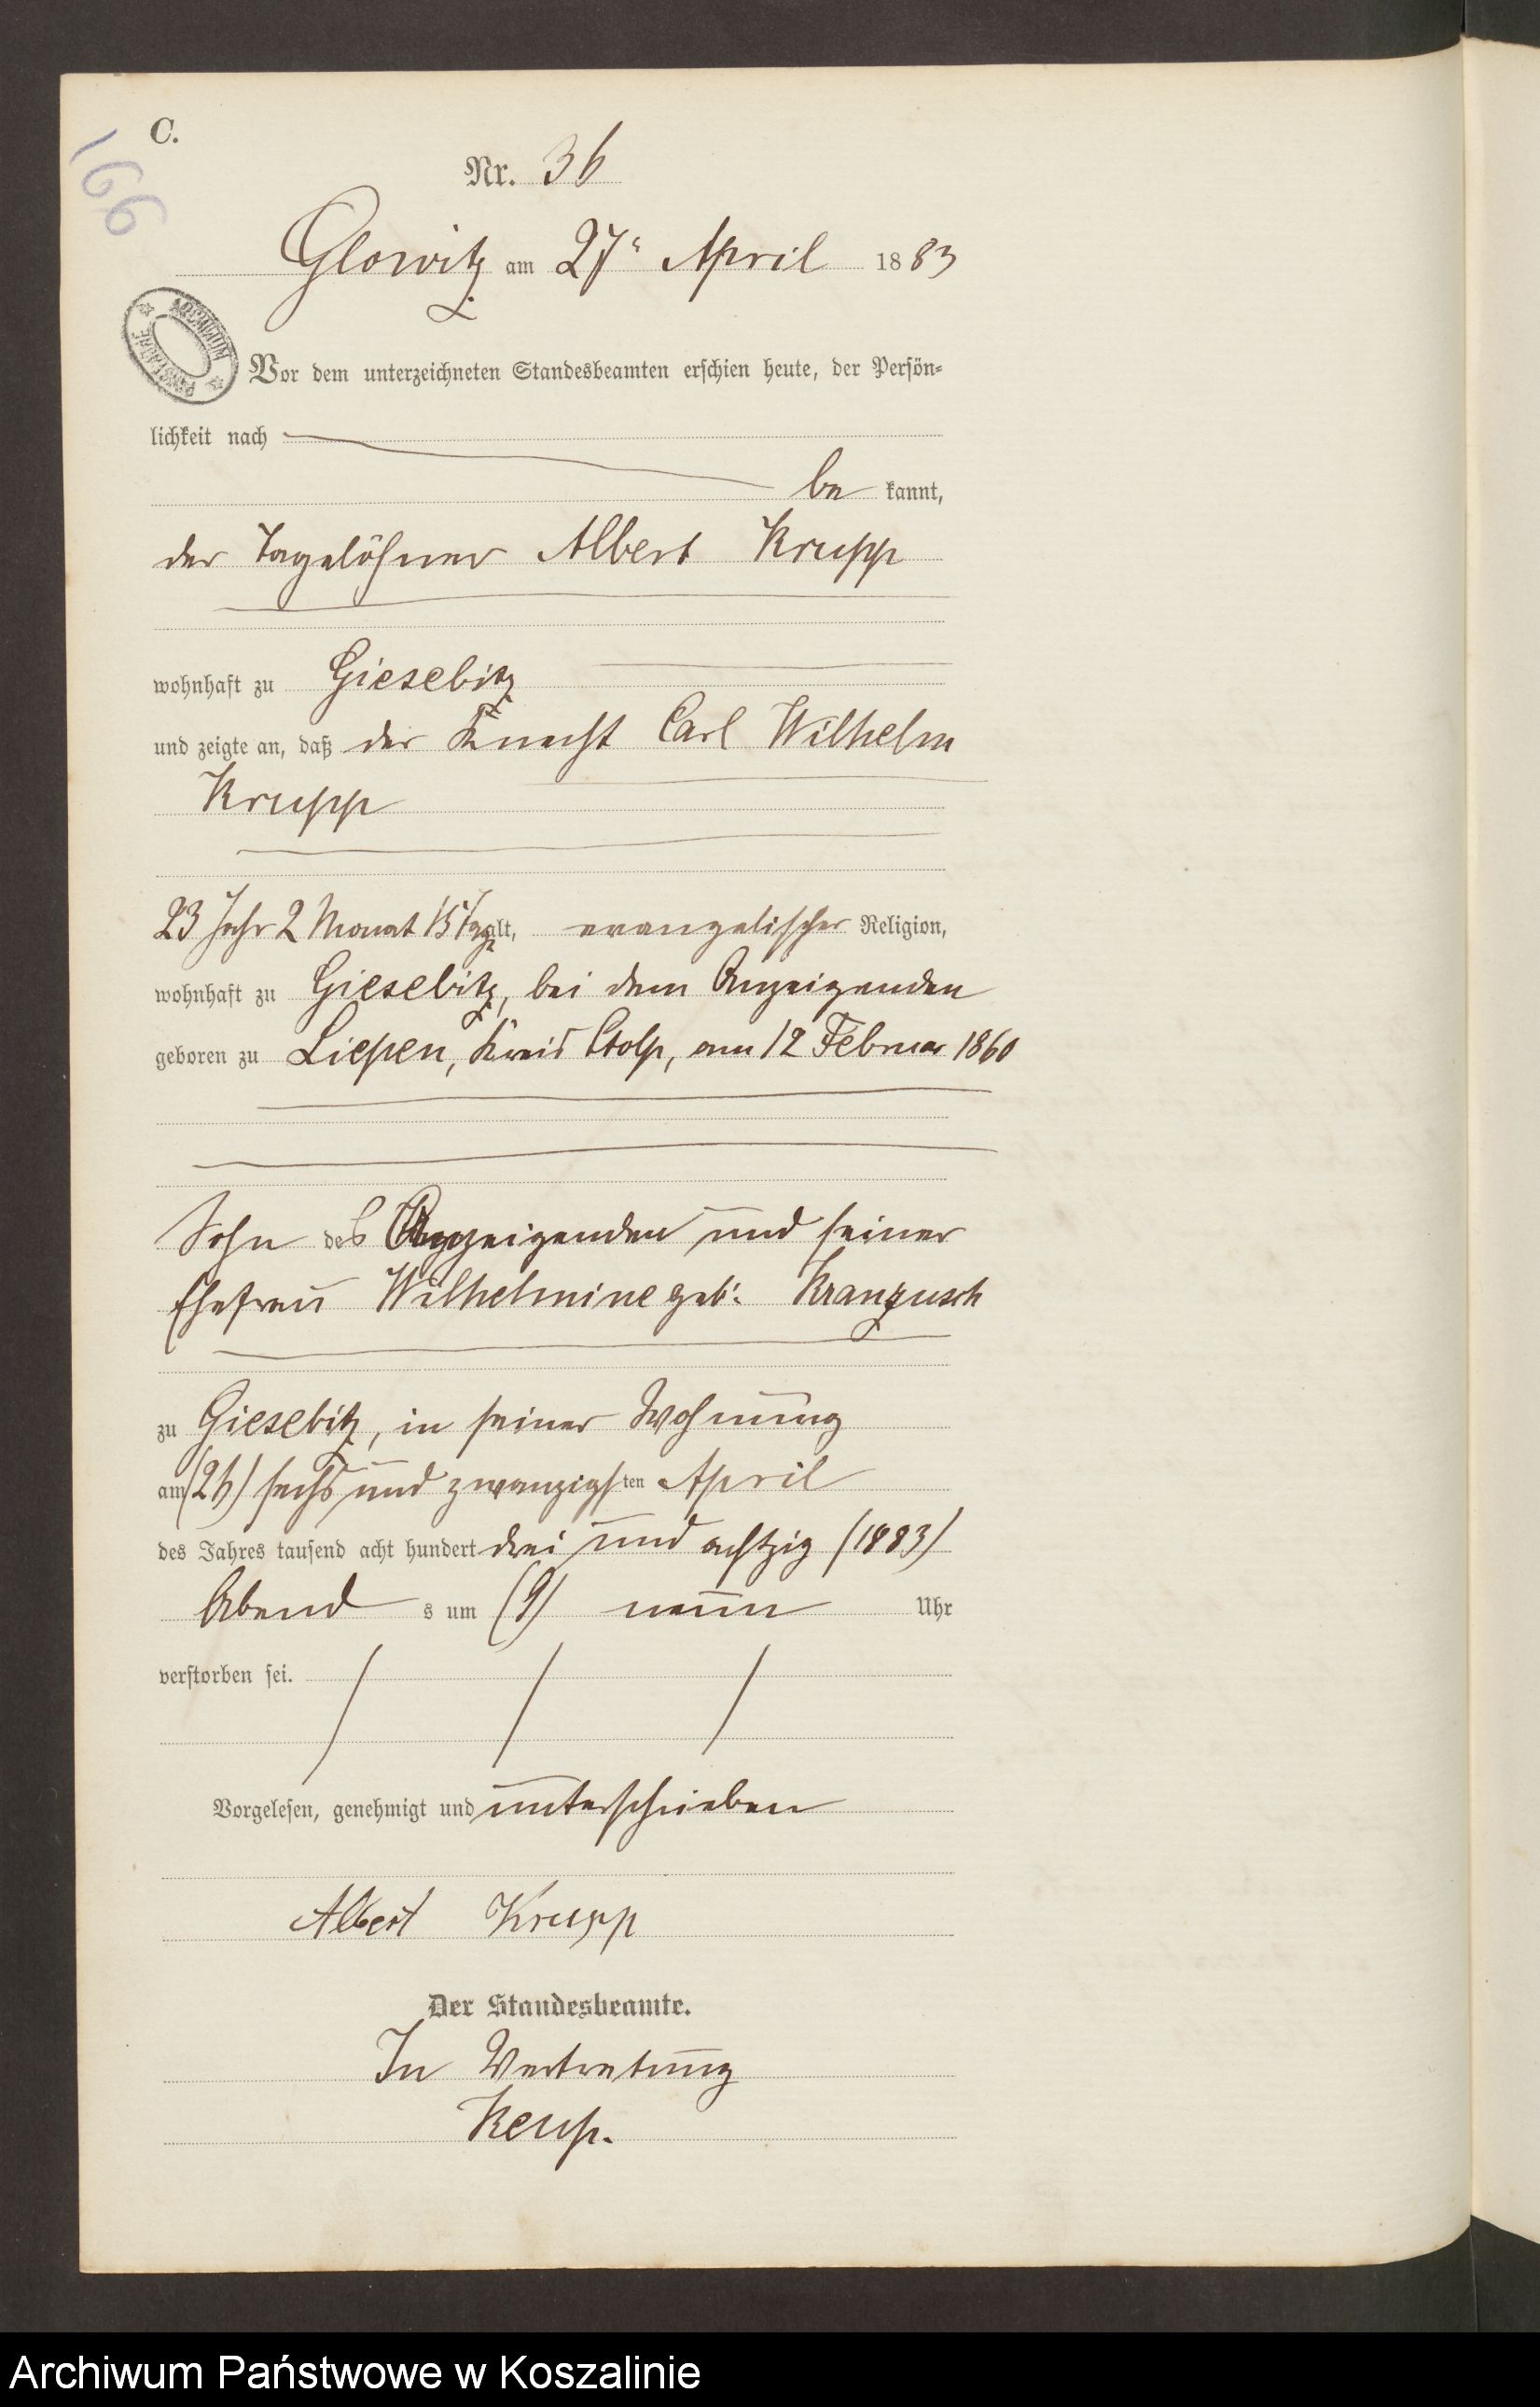 C.
166
Nr. 36
Glowitz am 27t April 1883
ARCHIWUM PAŃSTWOWE
Vor dem unterzeichneten Standesbeamten erschien heute, der Persön-
lichkeit nach
be kannt,
der Tagelöhner Albert Krupp
wohnhaft zu Giesebitz
und zeigte an, daß der Knecht Carl Wilhelm
Krupp
23 Jahr 2 Monat 15 Tage alt, evangelischer Religion,
wohnhaft zu Giesebitz, bei dem Anzeigenden
geboren zu Liepen, Kreis Stolp, am 12 Februar 1860
Sohn des Anzeigenden und seiner
Ehefrau Wilhelmine geb: Kranzusch
zu Giesebitz, in seiner Wohnung
am (26) sechs und zwanzigsten April
des Jahres tausend acht hundert drei und achtzig (1883)
Abend s um (9) neun Uhr
verstorben sei.
Vorgelesen, genehmigt und unterschrieben
Albert Krupp
Der Standesbeamte.
In Vertretung
Archiwum Państwowe w Koszalinie